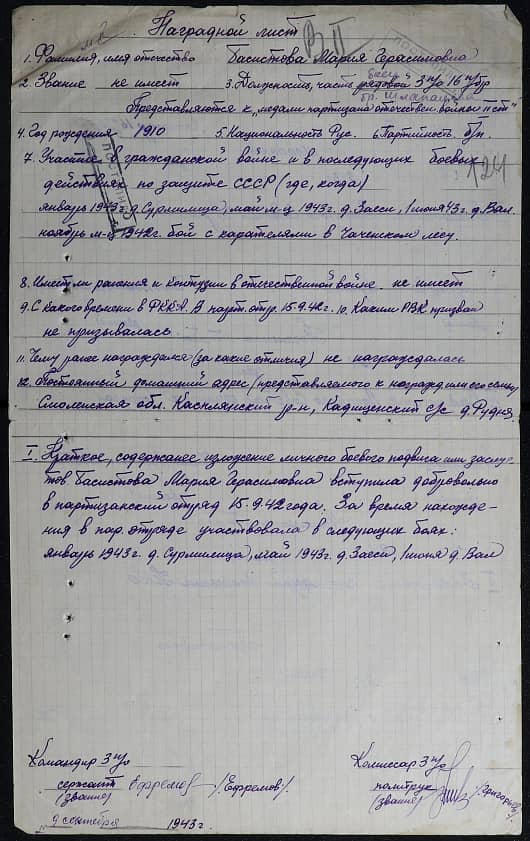 Наградной лист
В II
1. Фамилия, имя отчество Басистова Мария Герасимовна
2. Звание не имеет 3. Должность, часть рядовой 3 п/о 16 п/бр
боец
Представляются к „медали партизана отечествен. войны II ст"
4. Год рождения 1910 5. Национальность Рус. 6 Партийность б/п.
124
7. Участие в гражданской войне и в последующих боевых
действиях по защите СССР (где, когда)
январь 1943 г. д. Сурмилица, май м-ц 1943 г. д. Заеси, 1 июня 43 г. д. Вал.
ноябрь м-ц 1942 г. бой с карателями в лесу.
8. Имест ли ранения и контузии в отечественной войне. не имеет
9. С какого времени в РККА. В парт. отр. 15.9.42 г. 10. Каким РВК призван
не призывалась
11. Чему ранее награждался (за какие отличия) не награждалась
12. Постоянный домашний адрес (представляемого к награжд. или его семьи)
Смоленская обл. Касплянский р-н, Кадищенский с/с д. Рудня.
I. Краткое, содержанее изложение личного боевого подвига или заслу-
гов Басистова Мария Герасимовна вступила добровольно
в партизанский отряд 15.9.42 года. За время нахожде-
ния в пар. отряде участвовала в следующих боях:
январь 1943 г. д. Сурмилица, май 1943 г. д. Заеси, 1 июня д. Вал
Командир 3 п/о
сержант Ефремов /Ефремов/
(звание)
„9 сентября 1943 г.
Комиссар 3 п/о
политрук /Григорьев/
(звание)